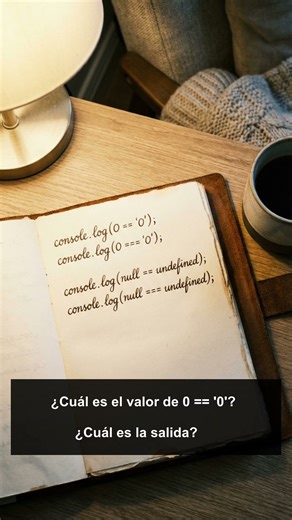 console.log(0 == '0');
console.log(0 === '0');
console.log(null == undefined);
console.log(null === undefined);
¿Cuál es el valor de 0 == '0'?
¿Cuál es la salida?